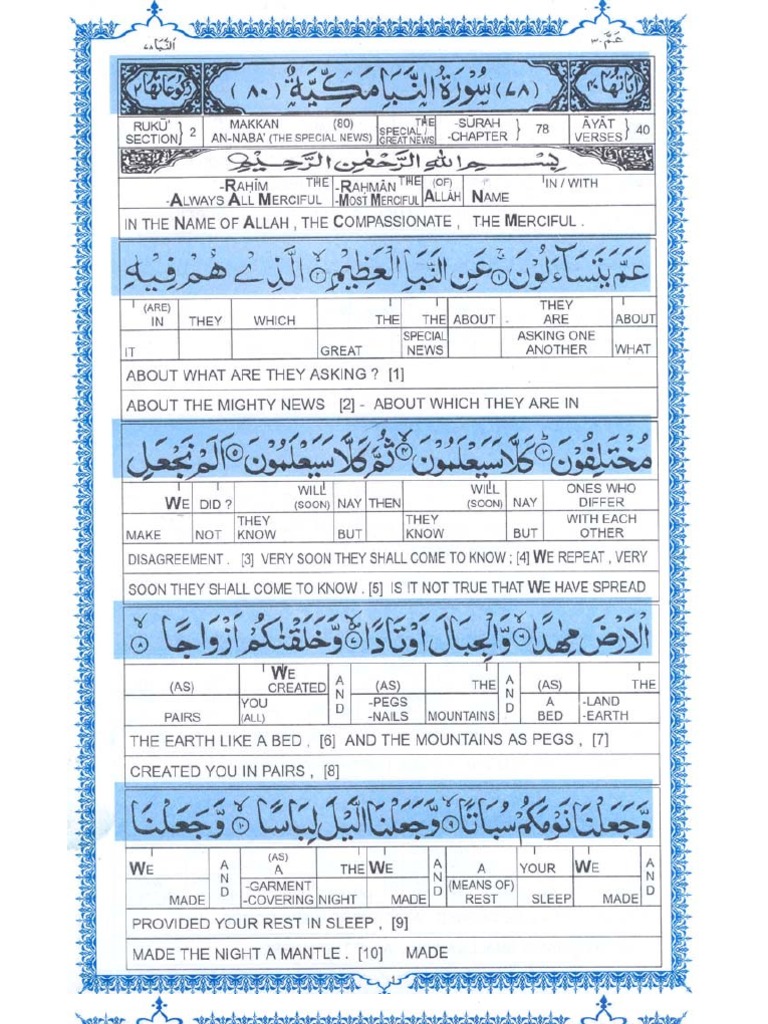 النبا ٧٨
عمّ ٣٠
اٰيَاتُهَا ٤٠ (٧٨) سُوْرَةُ النَّبَاِ مَكِّيَّةٌ (٨٠) رُكُوْعَاتُهَا ٢
RUKŪ' SECTION } 2 MAKKAN (80) AN-NABA' (THE SPECIAL NEWS) THE SPECIAL / GREAT NEWS -SŪRAH -CHAPTER } 78 ĀYĀT VERSES } 40
بِسْمِ اللّٰهِ الرَّحْمٰنِ الرَّحِيْمِ
-RAḤĪM THE -RAḤMĀN THE (OF) IN / WITH
-ALWAYS ALL MERCIFUL -MOST MERCIFUL ALLĀH NAME
IN THE NAME OF ALLAH , THE COMPASSIONATE , THE MERCIFUL .
عَمَّ يَتَسَآءَلُوْنَ ۝١ عَنِ النَّبَاِ الْعَظِيْمِ ۝٢ الَّذِيْ هُمْ فِيْهِ
(ARE) IN THEY WHICH THE THE ABOUT THEY ARE ABOUT
IT GREAT SPECIAL NEWS ASKING ONE ANOTHER WHAT
ABOUT WHAT ARE THEY ASKING ? [1]
ABOUT THE MIGHTY NEWS [2] - ABOUT WHICH THEY ARE IN
مُخْتَلِفُوْنَ ۝٣ كَلَّا سَيَعْلَمُوْنَ ۝٤ ثُمَّ كَلَّا سَيَعْلَمُوْنَ ۝٥ اَلَمْ نَجْعَلِ
WE DID ? WILL (SOON) NAY THEN WILL (SOON) NAY ONES WHO DIFFER
MAKE NOT THEY KNOW BUT THEY KNOW BUT WITH EACH OTHER
DISAGREEMENT . [3] VERY SOON THEY SHALL COME TO KNOW ; [4] WE REPEAT , VERY
SOON THEY SHALL COME TO KNOW . [5] IS IT NOT TRUE THAT WE HAVE SPREAD
الْاَرْضَ مِهٰدًا ۝٦ وَّالْجِبَالَ اَوْتَادًا ۝٧ وَّخَلَقْنٰكُمْ اَزْوَاجًا ۝٨
(AS) WE CREATED AND (AS) THE AND (AS) THE
PAIRS YOU (ALL) -PEGS -NAILS MOUNTAINS A BED -LAND -EARTH
THE EARTH LIKE A BED , [6] AND THE MOUNTAINS AS PEGS , [7]
CREATED YOU IN PAIRS , [8]
وَّجَعَلْنَا نَوْمَكُمْ سُبَاتًا ۝٩ وَّجَعَلْنَا الَّيْلَ لِبَاسًا ۝١٠ وَّجَعَلْنَا
WE AND (AS) A THE WE AND A YOUR WE AND
MADE -GARMENT -COVERING NIGHT MADE (MEANS OF) REST SLEEP MADE
PROVIDED YOUR REST IN SLEEP , [9]
MADE THE NIGHT A MANTLE . [10] MADE
1